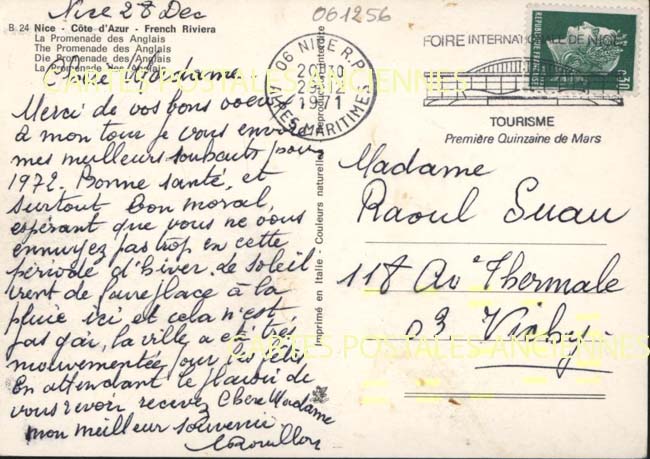 Nice 28 Dec
061256
B 24 Nice - Côte d'Azur - French Riviera
La Promenade des Anglais
The Promenade des Anglais
Die Promenade des Anglais
La Promenade des Anglais
Chère Madame
Merci de vos bons voeux
à mon tour je vous envoie
mes meilleurs souhaits pour
1972. Bonne santé, et
surtout bon moral,
espérant que vous ne vous
ennuyez pas trop en cette
période d'hiver, de soleil
vient de faire place à la
pluie ici et cela n'est
pas gai, la ville a été très
mouvementée pour les fêtes
En attendant le plaisir de
vous revoir recevez Chère Madame
mon meilleur souvenir
Imprimé en Italie - Couleurs naturelles
06 NICE R.P.
ALPES MARITIMES
1971
FOIRE INTERNATIONALE DE NICE
TOURISME
Première Quinzaine de Mars
REPUBLIQUE FRANÇAISE
0,30
Madame
Raoul Suau
118 Av Thermale
03 Vichy
CARTES POSTALES ANCIENNES
CARTES POSTALES ANCIENNES